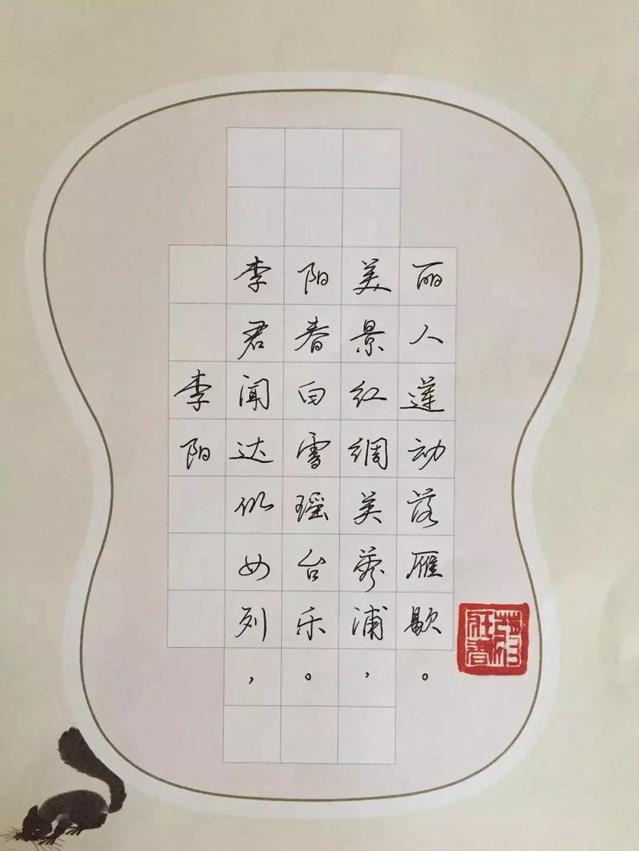 李阳
李君闻达仙女列，
阳春白雪瑶台乐。
美景红绸芙蓉浦，
丽人莲动落雁歇。